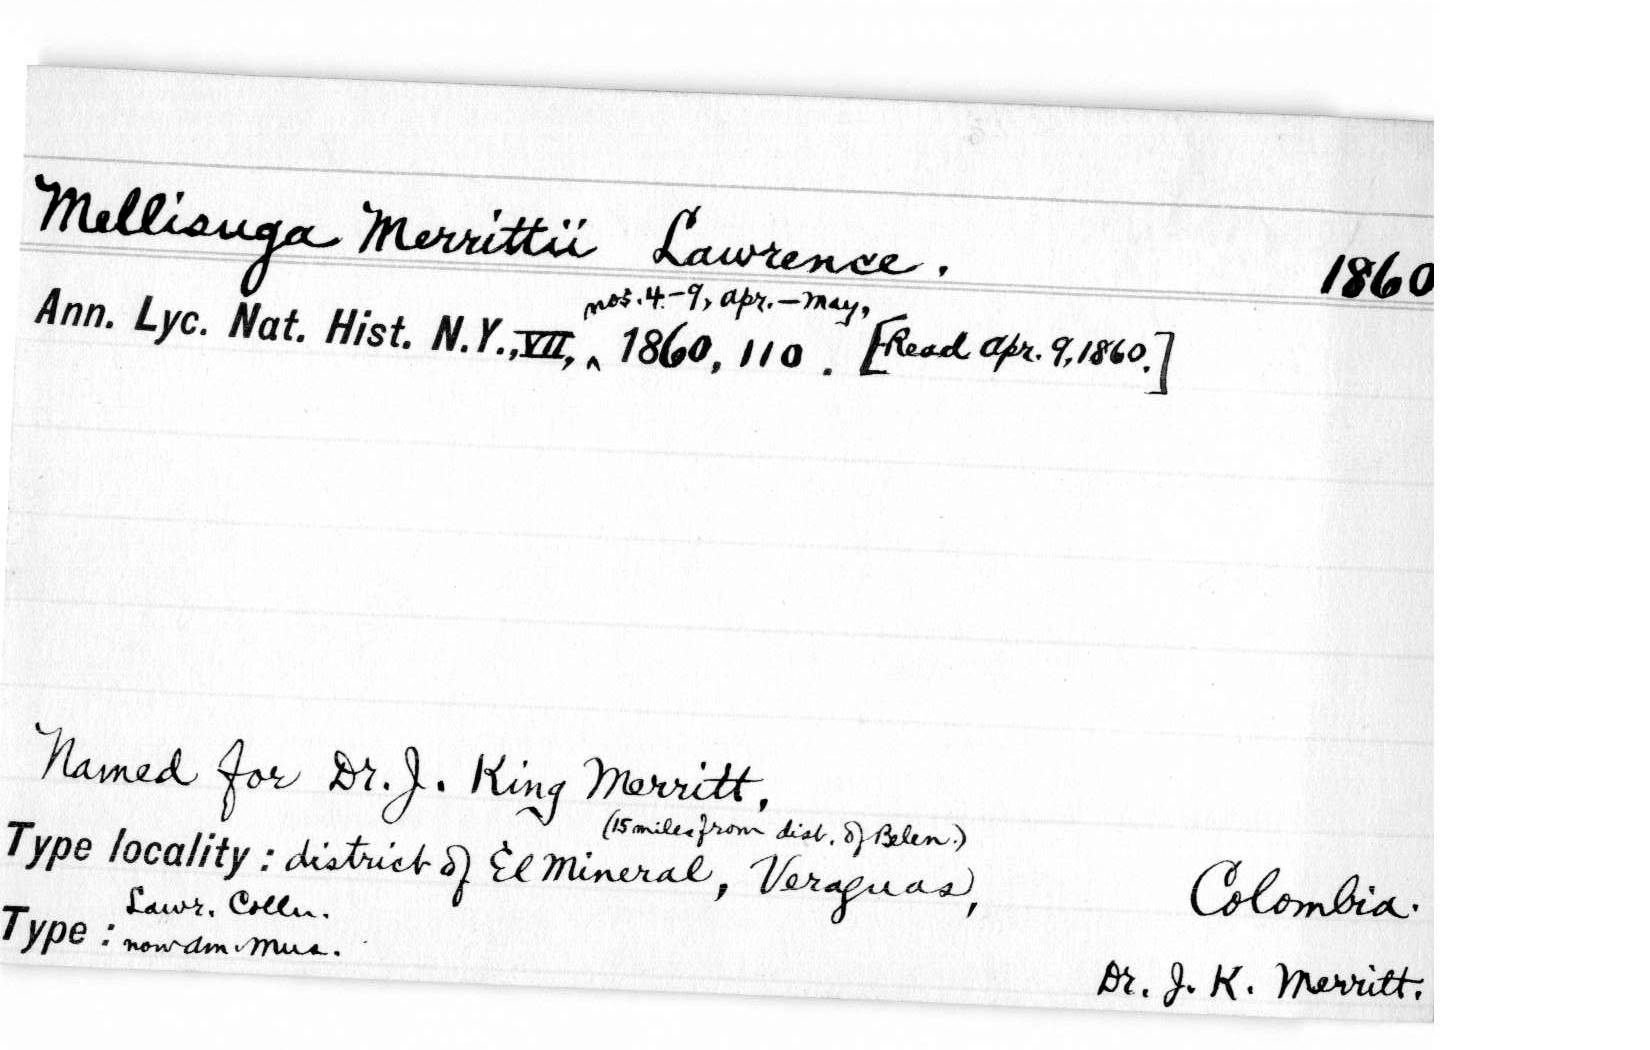 Mellisuga Merrittii Lawrence. 1860
nos. 4-9, Apr.-May,
Ann. Lyc. Nat. Hist. N.Y., VII, ^ 1860, 110. [Read Apr. 9, 1860.]
Named for Dr. J. King Merritt,
(15 miles from dist. of Belen.)
Type locality: district of El Mineral, Veraguas, Colombia.
Lawr. Colln.
Type: now Am. Mus.
Dr. J. K. Merritt.